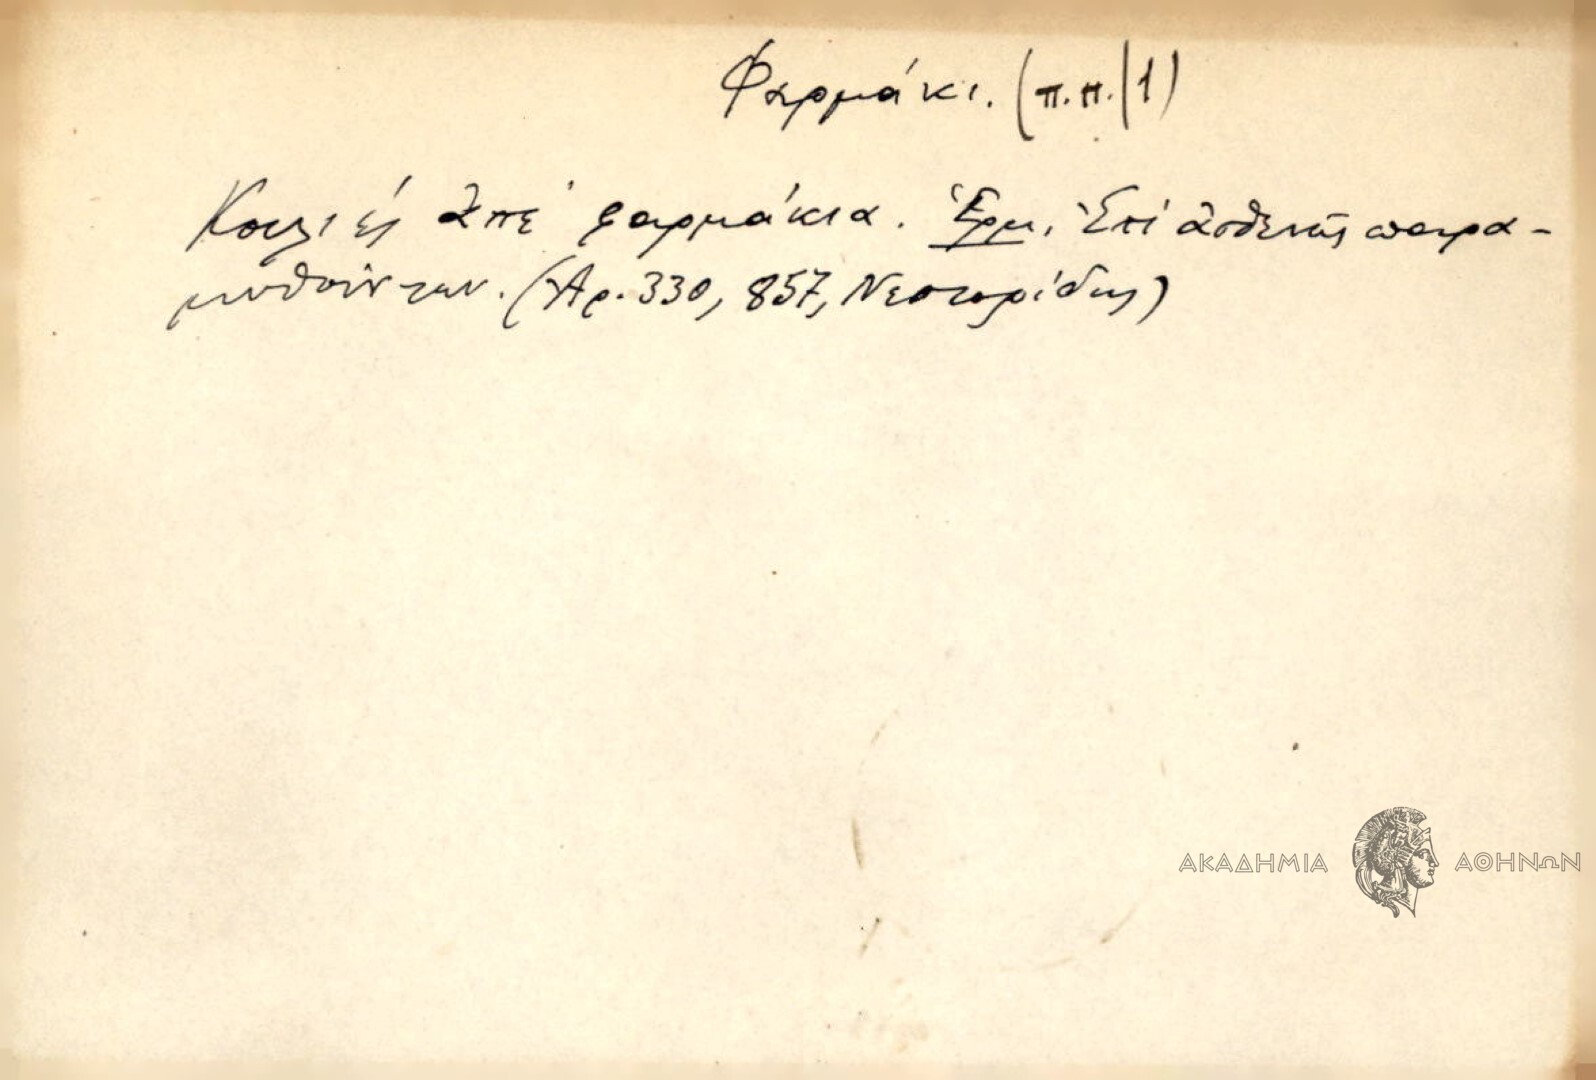 Φαρμάκι. (π.π./1)
Κουλιές ἀπὲ φαρμάκια. Ἑρμ. Ἐπὶ ἀσθενῶς παρα-
μυθούντων. (Ἀρ. 330, 857, Νεστορίδης)
ΑΚΑΔΗΜΙΑ ΑΘΗΝΩΝ